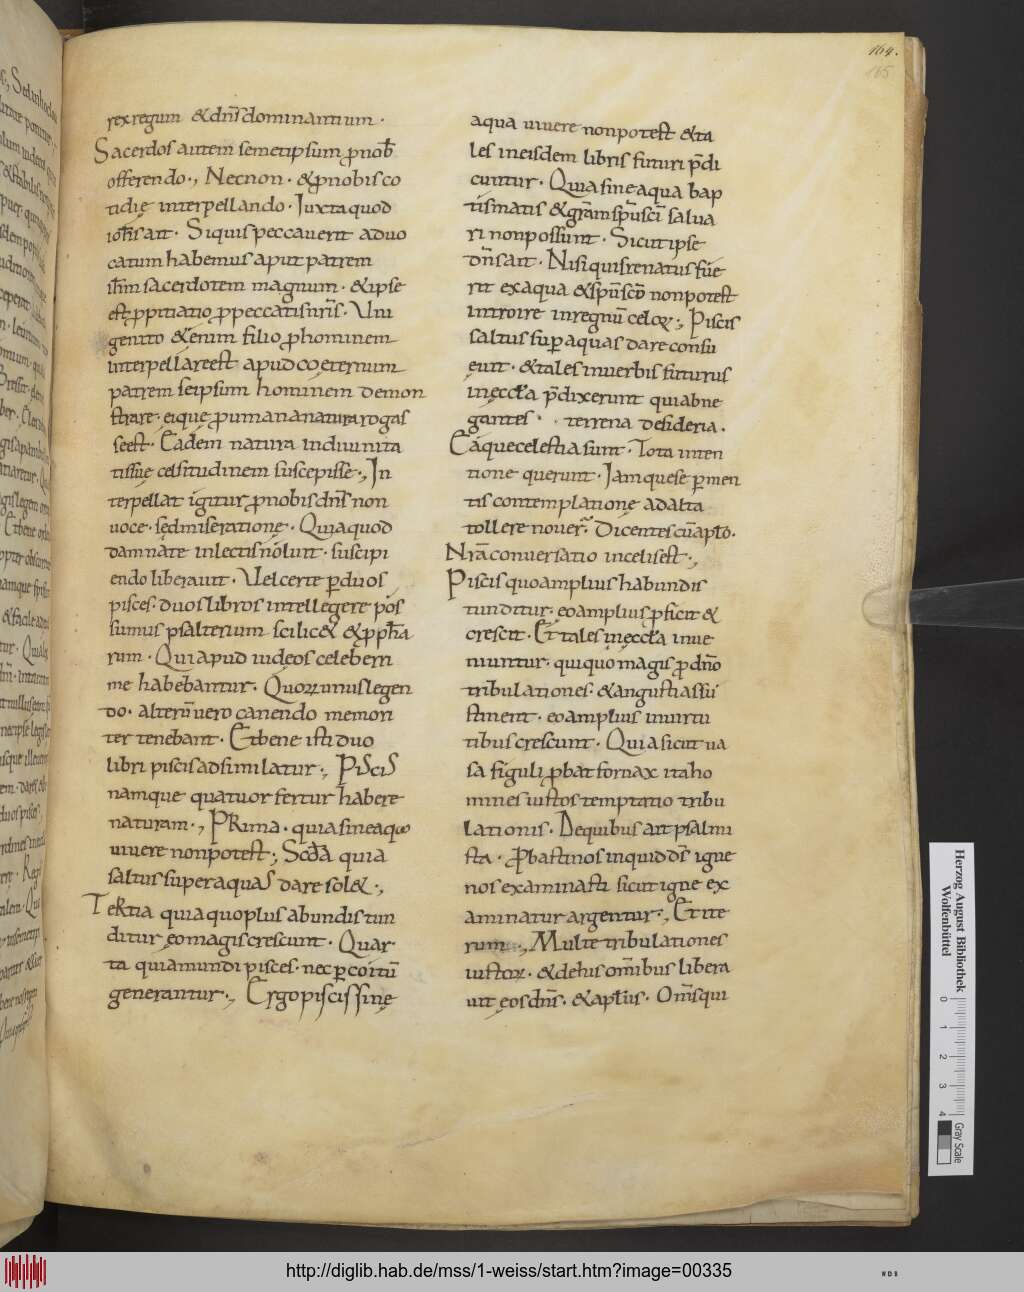 164.
165
rex regum & dn̄s dominantium ·
Sacerdos autem semetipsum ꝓ nob̄
offerendo ·, Necnon · & ꝓ nobis co
tidię interpellando · Iuxta quod
ioh̄s ait · Si quis peccauerit aduo
catum habemus aput patrem
ih̄m sacerdotem magnum · & ipse
est ꝓpitiatio ꝓ peccatis nr̄is · Uni
genito & enim filio ꝓ hominem
interpellare est apud coęternum
patrem seipsum hominem demon
strare · eique ꝓ umana natura rogas
se est · Eadem natura in diuinita
tis suę celsitudinem suscepisse ·, In
terpellat igitur ꝓ nobis dn̄s non
uoce · sed miseratione · Quia quod
damnare in lectis noluit · suscipi
endo liberauit · Uel certe ꝑ duos
pisces · duos libros intellegere pos
sumus psalterium scilic& & ꝓph̄a
rum · Qui apud iudeos celeberri
me habebantur · Quorum unus legen
do · alterū uero canendo memori
ter tenebant · Et bene isti duo
libri piscis adsimilatur ·, Piscis
namque quatuor fertur habere
naturam ·, Prima · quia sine aqua
uiuere non potest ·, Scd̄a quia
saltus super aquas dare sol& ·,
Tertia quia quo plus abundis tun
ditur eo magis crescunt · Quar
ta quia mundi pisces · nec ꝑ coitū
generantur ·, Ergo piscis sinę
aqua uiuere non potest & ta
les in eisdem libris futuri p̄di
cuntur · Quia sine aqua bap
tismatis & grām sp̄us sc̄i salua
ri non possunt · Sicut ipse
dn̄s ait · Nisi quis renatus fue
rit ex aqua & sp̄u sc̄o non potest
introire in regnū celoꝝ ·, Piscis
saltus suꝑ aquas dare consu
euit · & tales in uerbis futurus
in ęccl̄a p̄dixerunt qui abne
gantes · terrena desideria ·
Ea que celestia sunt · Tota inten
tione querunt · Iamque se ꝑ men
tis contemplatione ad alta
tollere nouer̄ · Dicentes cū apl̄o ·
Nr̄a conuersatio in celis est ·,
Piscis quo amplius habundis
tunditur · eo amplius ꝓficit &
crescit · Et tales in ęccl̄a inue
niuntur · qui quo magis ꝓ dn̄o
tribulationes · & angustias sus
tinent · eo amplius in uirtu
tibus crescunt · Quia sicut ua
sa figuli ꝓbat fornax ita ho
mines iustos temptatio tribu
lationis · De quibus ait psalmi
sta · ꝓbasti nos inquid ds̄ igne
nos examinasti sicut igne ex
aminatur argentum ·, Et ite
rum ·, Multe tribulationes
iustoꝝ · & de his om̄ibus libera
uit eos dn̄s · & apl̄us · Om̄s qui
Herzog August Bibliothek
Wolfenbüttel
0 1 2 3 4
Gray Scale
http://diglib.hab.de/mss/1-weiss/start.htm?image=00335